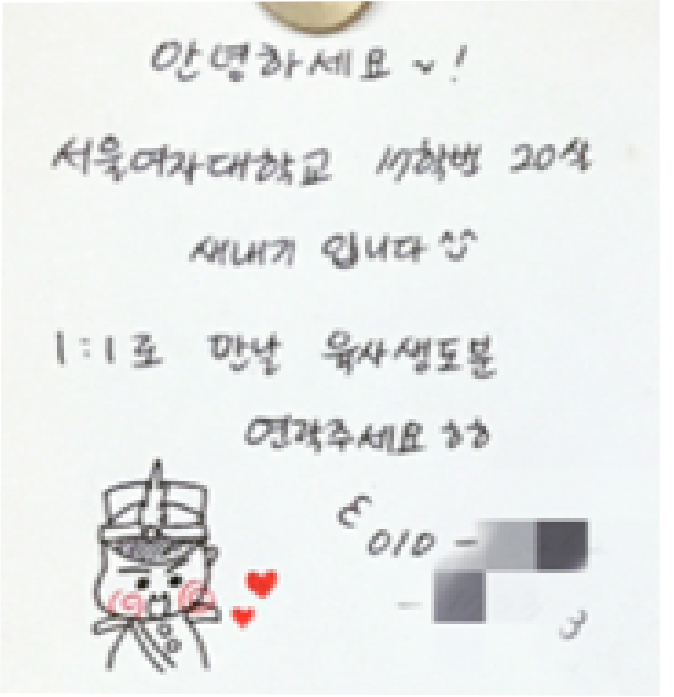 안녕하세요~!
서울여자대학교 17학번 20살
새내기 입니다^^
1:1로 만날 육사생도분
연락주세요 ㅎㅎ
010 -
-